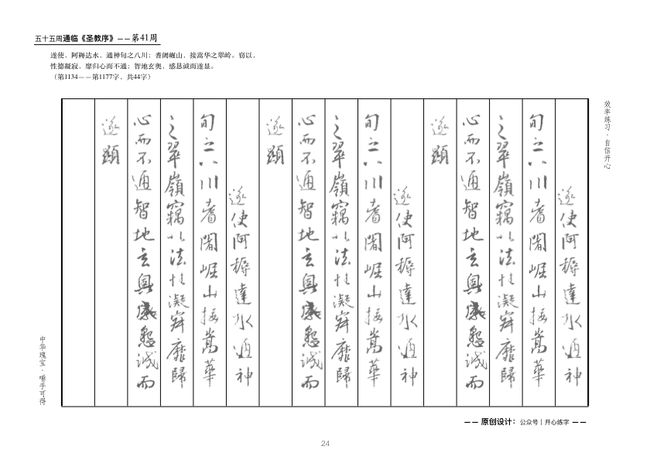 五十五周通临《圣教序》——第41周
遂使，阿耨达水，通神甸之八川；耆阇崛山，接嵩华之翠岭，窃以，
性德凝寂，靡归心而不通；智地玄奥，感恳诚而遂显。
（第1134——第1177字，共44字）
效率练习·自信开心
遂使阿耨達水通神
甸之八川耆闍崛山接嵩華
之翠嶺竊以法性凝寂靡歸
心而不通智地玄奧感懇誠而
遂顯
遂使阿耨達水通神
甸之八川耆闍崛山接嵩華
之翠嶺竊以法性凝寂靡歸
心而不通智地玄奧感懇誠而
遂顯
遂使阿耨達水通神
甸之八川耆闍崛山接嵩華
之翠嶺竊以法性凝寂靡歸
心而不通智地玄奧感懇誠而
遂顯
中华瑰宝·唾手可得
—— 原创设计：公众号｜开心练字 ——
24